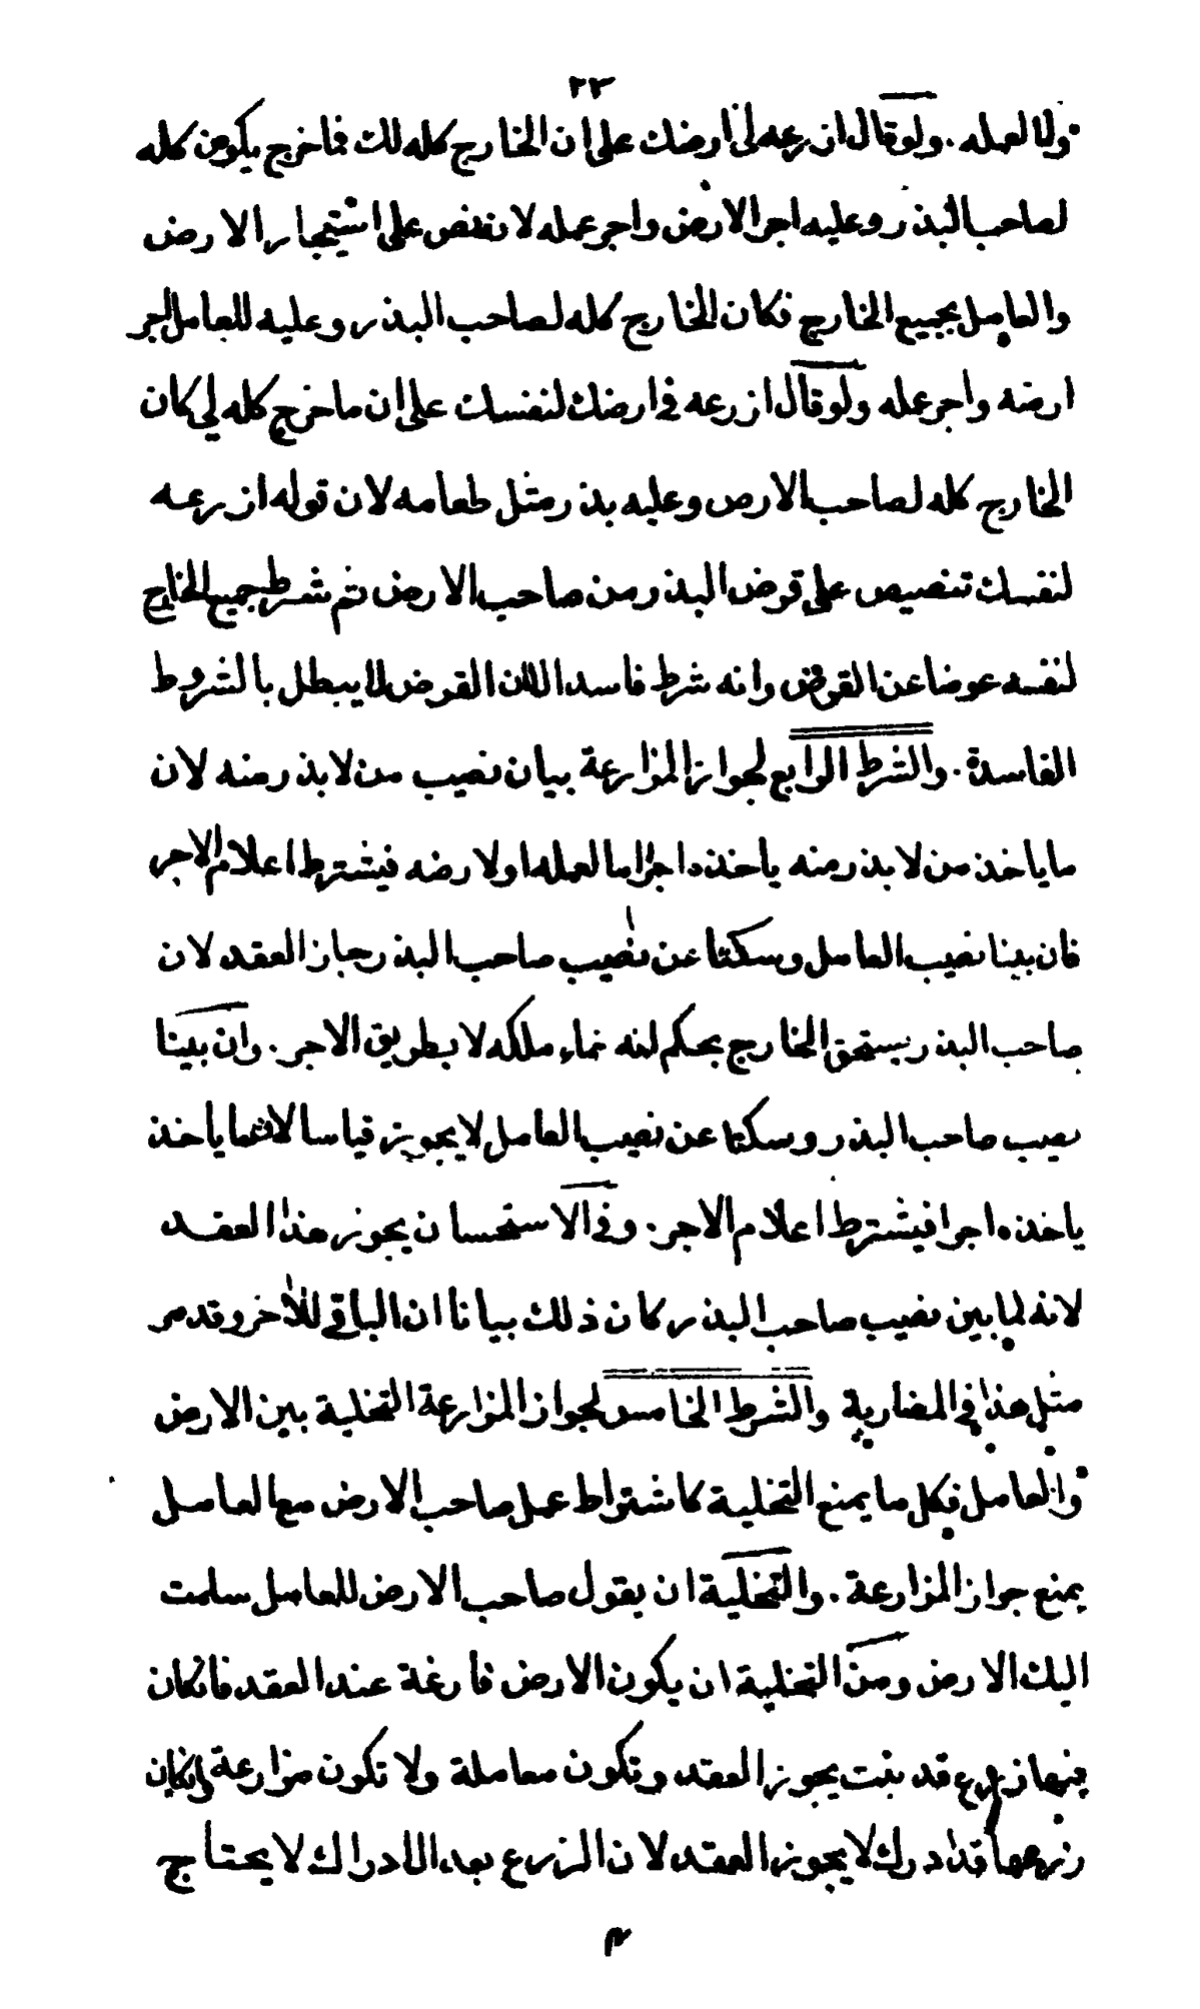 ٢٣
ولا لعمله . ولو قال ازرعه لى ارضك على ان الخارج كله لك فما خرج يكون كله
لصاحب البذر وعليه اجر الارض واجر عمله لانه نص على استيجار الارض
والعامل بجميع الخارج فكان الخارج كله لصاحب البذر وعليه للعامل اجر
ارضه واجر عمله ولو قال ازرعه فى ارضك لنفسك على ان ما خرج كله لي كان
الخارج كله لصاحب الارض وعليه بذر مثل طعامه لان قوله ازرعه
لنفسك تنصيص على قرض البذر من صاحب الارض ثم شرط جميع الخارج
لنفسه عوضا عن القرض وانه شرط فاسد الا ان القرض لا يبطل بالشروط
الفاسدة . والشرط الرابع لجواز المزارعة بيان نصيب من لا بذر منه لان
ما ياخذ من لا بذر منه ياخذه اجرا اما لعمله او لارضه فيشترط اعلام الاجر
فان بينا نصيب العامل وسكتا عن نصيب صاحب البذر جاز العقد لان
صاحب البذر يستحق الخارج بحكم انه نماء ملكه لا بطريق الاجر . وان بينا
نصيب صاحب البذر وسكتا عن نصيب العامل لا يجوز قياسا لان ما ياخذ
ياخذه اجرا فيشترط اعلام الاجر . وفى الاستحسان يجوز هذا العقد
لانه لما بين نصيب صاحب البذر كان ذلك بيانا ان الباقي للآخر وقد مر
مثل هذا في المضاربة والشرط الخامس لجواز المزارعة التخلية بين الارض
والعامل فكل ما يمنع التخلية كاشتراط عمل صاحب الارض مع العامل
يمنع جواز المزارعة . والتخلية ان يقول صاحب الارض للعامل سلمت
اليك الارض ومن التخلية ان يكون الارض فارغة عند العقد فان كان
فيها زرع قد نبت يجوز العقد وتكون معاملة ولا تكون مزارعة وان كان
زرعها قد ادرك لا يجوز العقد لان الزرع بعد الادراك لا يحتاج